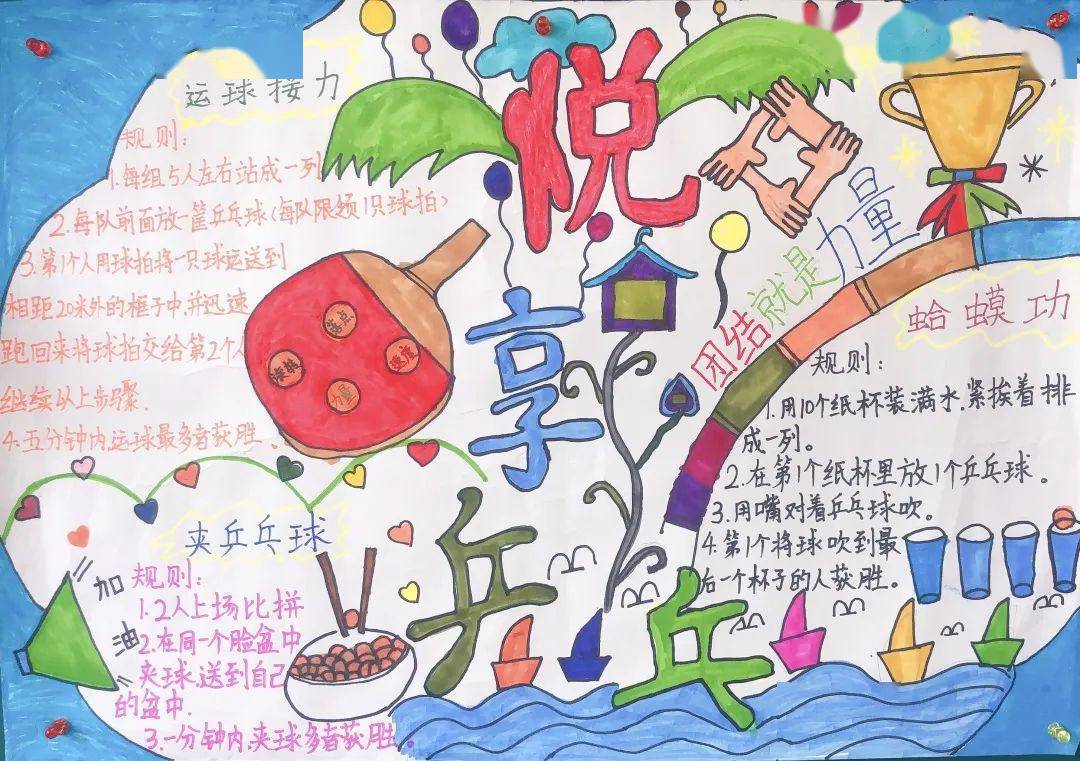 悦
享
乒
乓
运球接力
规则：
1.每组5人左右站成一列
2.每队前面放一筐乒乓球(每队限领1只球拍)
3.第1个人用球拍将一只球运送到
相距20米外的框子中,并迅速
跑回来将球拍交给第2个人
继续以上步骤.
4.五分钟内运球最多者获胜。
落点
速度
力量
团结就是力量
蛤蟆功
规则：
1.用10个纸杯装满水.紧挨着排
成一列。
2.在第1个纸杯里放1个乒乓球。
3.用嘴对着乒乓球吹。
4.第1个将球吹到最
后一个杯子的人获胜。
夹乒乓球
规则：
1.2人上场比拼
2.在同一个脸盆中
夹球.送到自己
的盆中.
3.一分钟内,夹球多者获胜。
加
油